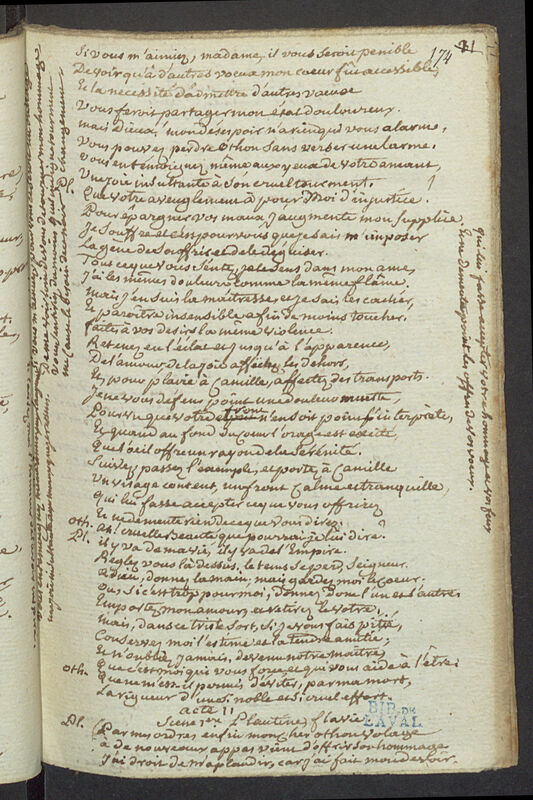 174
Si vous m'aimiez, madame, il vous seroit penible
De voir qu'à d'autres voeux mon coeur fut accessible,
Et la necessité d'admettre d'autres voeux
Vous feroit partager mon état douloureux.
mais Dieux, mon desespoir n'a rien qui vous alarme,
Vous pouvez perdre Othon sans verser une larme.
Vous en temoignez même aux yeux de votre amant,
Une joie insultante à son cruel tourment.
Pl. Que votre aveuglement a pour Moi d'injustice.
Pour épargner vos maux j'augmente mon supplice,
Je souffre et c'est pour vous que je sais m'imposer
La gene de souffrir et de le deguiser.
Tout ce que vous sentez, je le sens dans mon ame,
J'ai les mêmes douleurs comme la même flame.
mais j'en suis la maitresse, et je sais les cacher,
Et paroitre insensible afin de moins toucher.
faites à vos desirs la même violence.
Retenez en l'éclat et jusqu'à l'apparence,
De l'amour de la joie affectez les dehors,
Et pour plaire à Camille, affectez des transports.
Je ne vous defens point une douleur muette,
Pourvu que votre front n'en soit point l'interprète,
Et quand au fond du coeur l'orage est excité,
Que l'oeil offre un rayon de la serenité.
Suivez, passez l'exemple, et portez à Camille
Un visage content, un front calme et tranquille,
Qui lui fasse accepter ce que vous offrirez
Et ne demente rien de ce que vous direz.
Oth. ah! cruelle beauté que pourrai je lui dire?
Pl. il y va de ma vie, il y va de l'Empire.
Réglez vous là dessus, le tems se perd, Seigneur.
adieu, donnez la main, mais gardez moi le coeur;
Ou, si c'est trop pour moi, donnez donc l'un et l'autre,
Emportez mon amour, et retirez le votre;
mais, dans ce triste sort, si je vous fais pitié,
Conservez moi l'estime et la tendre amitié;
Et n'oubliez jamais, devenu notre maître,
Que c'est moi qui vous force, et qui vous aide à l'être.
Oth. Que ne m'est il permis d'éviter, par ma mort,
La rigueur d'un si noble et si cruel effort.
acte II
Scene 1ere Plautine, flavie
Pl. Par mes ordres enfin mon cher othon volage
à de nouveaux appas vient d'offrir son hommage
J'ai droit de m'aplaudir, car j'ai fait mon devoir.
qui lui fasse accepter votre hommage et vos feux
Et ne demente point les offres de vos voeux.
BIB. DE
LAVAL